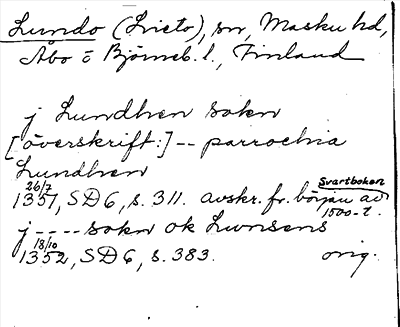 Lundo (Lieto), sn, Masku hd,
Åbo o Björneb. l., Finland
j Lundhen sokn
[överskrift:] -- parrochia
Lundhen
26/7 Svartboken
1351, SD 6, s. 311. avskr. fr. början av
1500-t.
j ---- sokn ok Lunsens
18/10
1352, SD 6, s. 383. orig.